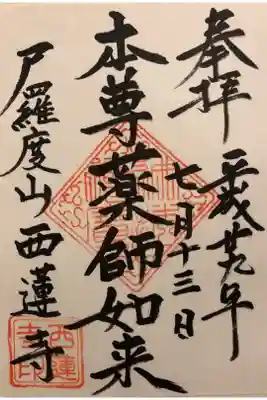 奉拝
平成廿九年
七月十三日
本尊薬師如来
尸羅度山西蓮寺
西蓮寺印